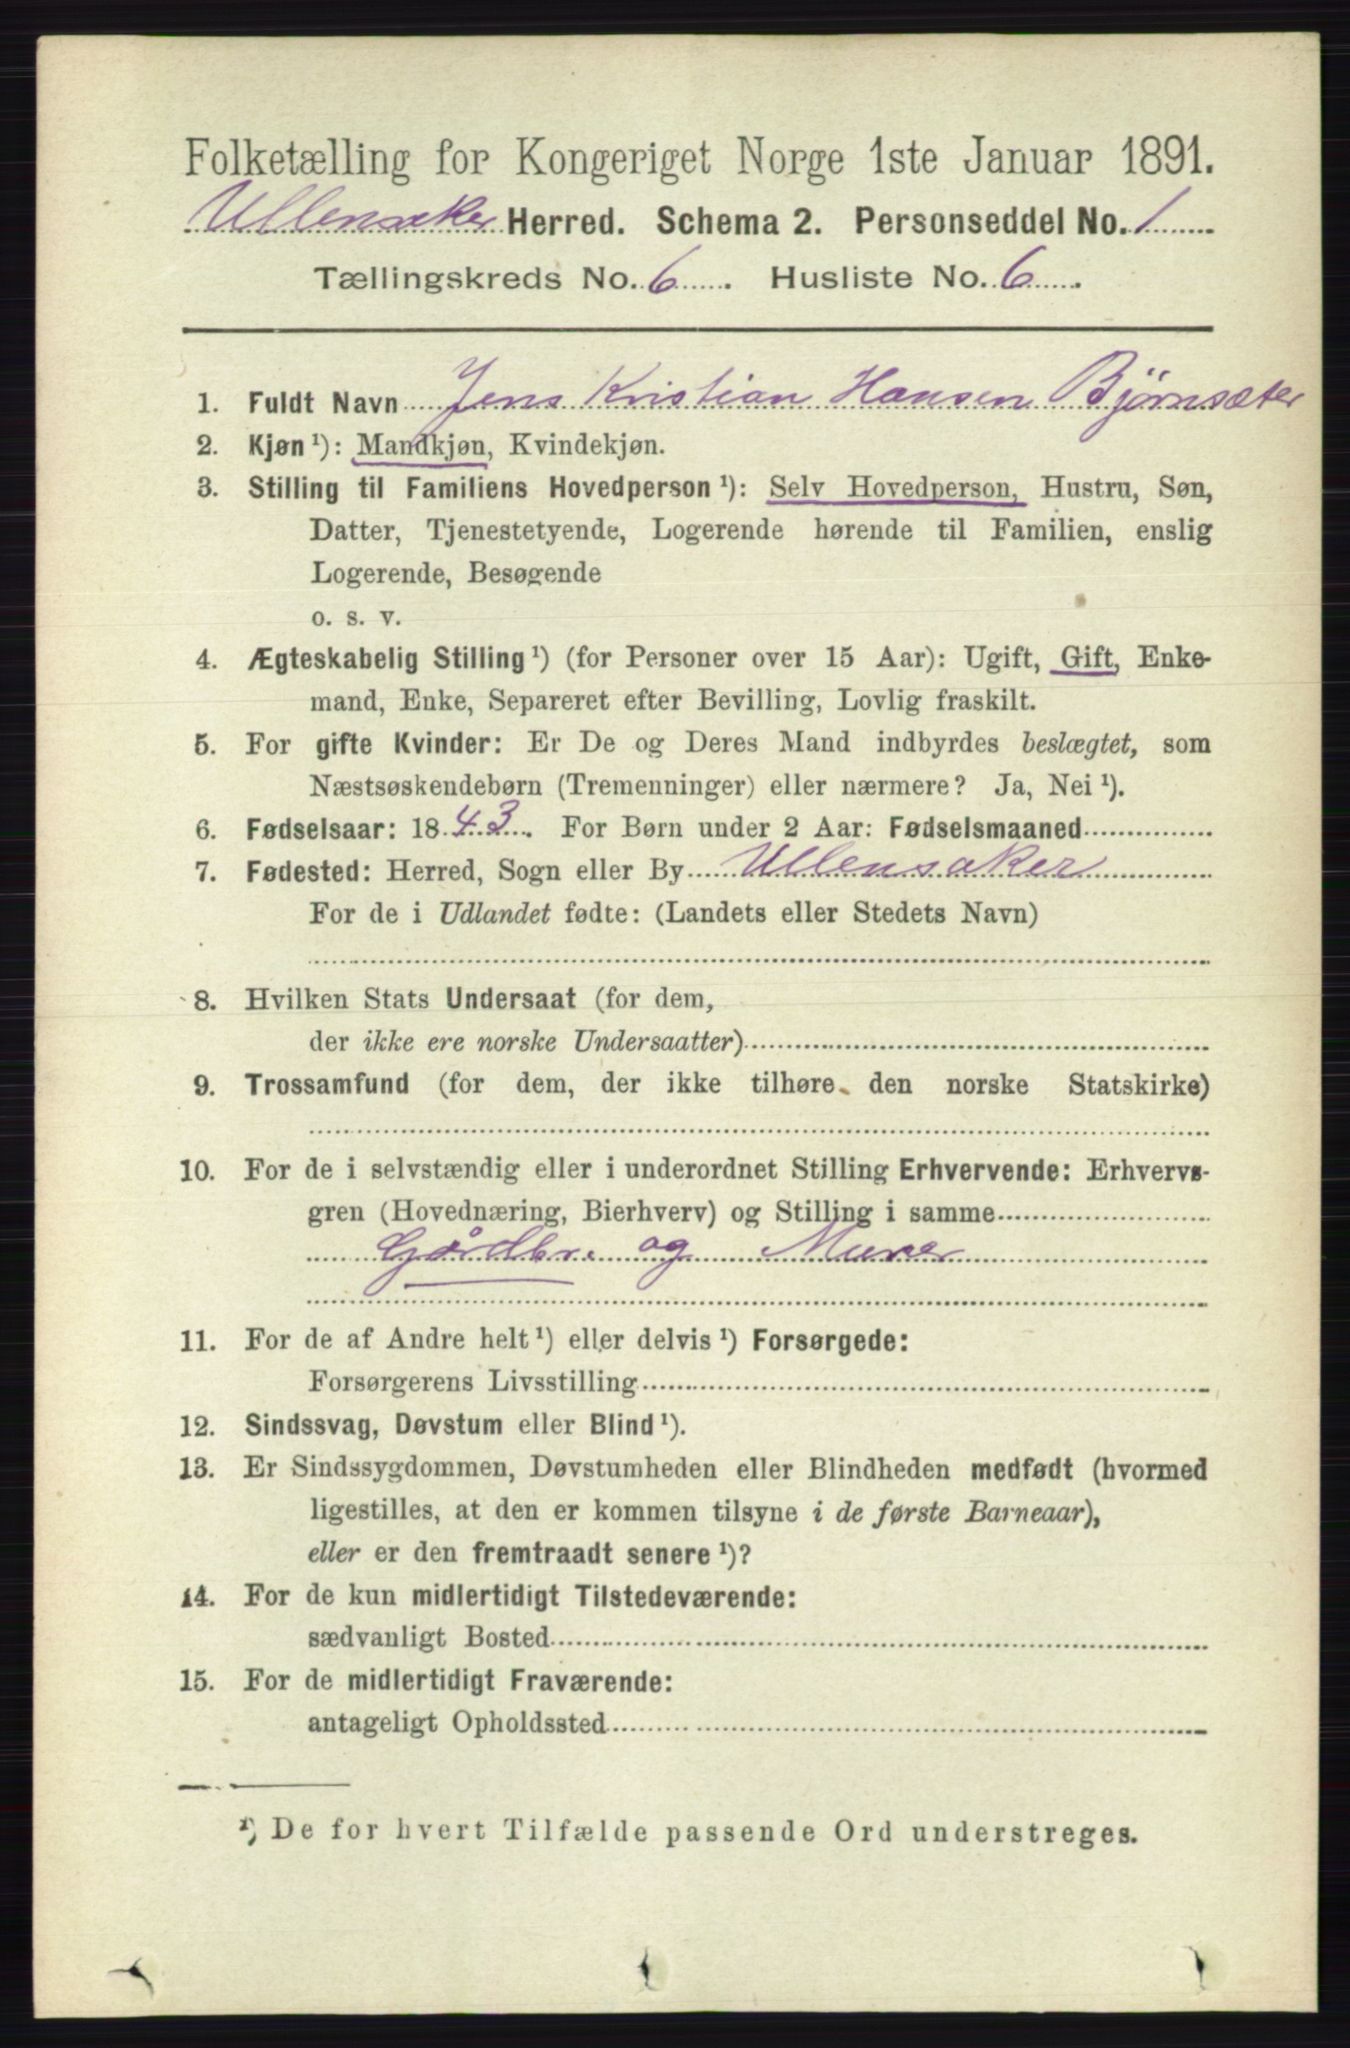 Folketælling for Kongeriget Norge 1ste Januar 1891.
Ullensaker Herred. Schema 2. Personseddel No. 1
Tællingskreds No. 6. Husliste No. 6.
1. Fuldt Navn Jens Kristian Hansen Bjørnsæter
2. Kjøn ¹): Mandkjøn, Kvindekjøn.
3. Stilling til Familiens Hovedperson ¹): Selv Hovedperson, Hustru, Søn,
Datter, Tjenestetyende, Logerende hørende til Familien, enslig
Logerende, Besøgende
o. s. v.
4. Ægteskabelig Stilling ¹) (for Personer over 15 Aar): Ugift, Gift, Enke-
mand, Enke, Separeret efter Bevilling, Lovlig fraskilt.
5. For gifte Kvinder: Er De og Deres Mand indbyrdes beslægtet, som
Næstsøskendebørn (Tremenninger) eller nærmere? Ja, Nei ¹).
6. Fødselsaar: 1843. For Børn under 2 Aar: Fødselsmaaned
7. Fødested: Herred, Sogn eller By Ullensaker
For de i Udlandet fødte: (Landets eller Stedets Navn)
8. Hvilken Stats Undersaat (for dem,
der ikke ere norske Undersaatter)
9. Trossamfund (for dem, der ikke tilhøre den norske Statskirke)
10. For de i selvstændig eller i underordnet Stilling Erhvervende: Erhvervs-
gren (Hovednæring, Bierhverv) og Stilling i samme
Gårdbr. og Murer
11. For de af Andre helt ¹) eller delvis ¹) Forsørgede:
Forsørgerens Livsstilling
12. Sindssvag, Døvstum eller Blind ¹).
13. Er Sindssygdommen, Døvstumheden eller Blindheden medfødt (hvormed
ligestilles, at den er kommen tilsyne i de første Barneaar),
eller er den fremtraadt senere ¹)?
14. For de kun midlertidigt Tilstedeværende:
sædvanligt Bosted
15. For de midlertidigt Fraværende:
antageligt Opholdssted
¹) De for hvert Tilfælde passende Ord understreges.